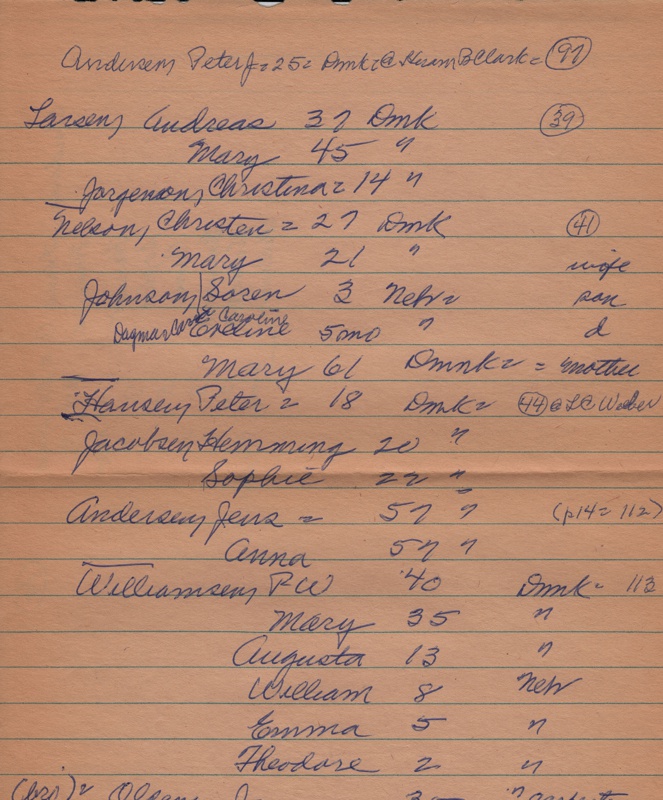 Andersen, Peter J = 25 = Dmk = @ Hiram B Clark = 97
Larsen, Andreas 37 Dmk 39
Mary 45 "
Jorgenson, Christina = 14 "
Nelson, Christen = 27 Dmk 41
Mary 21 " wife
Johnson, Soren 3 Nebr = son
Dagmar Caroline
Eveline 5mo " d
Mary 61 Dmnk = = mother
Hansen, Peter = 18 Dmk = 44 @ LC Weber
Jacobsen Hemming 20 "
Sophie 22 "
Andersen, Jens = 57 " (p14 = 112)
Anna 57 "
Williamsen, P W 40 Dmk = 113
Mary 35 "
Augusta 13 "
William 8 Neb
Emma 5 "
Theodore 2 "
(bro) =